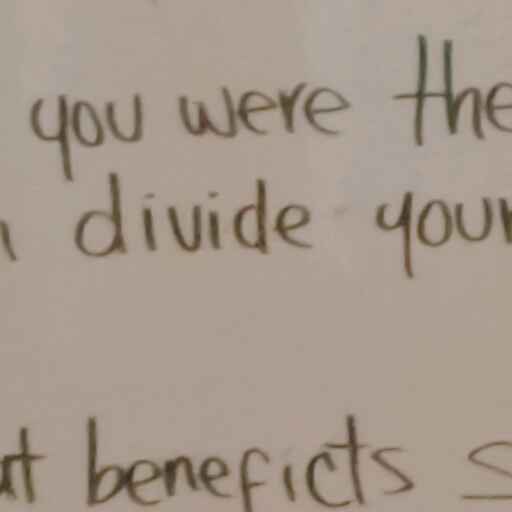 you were the
divide your
beneficts